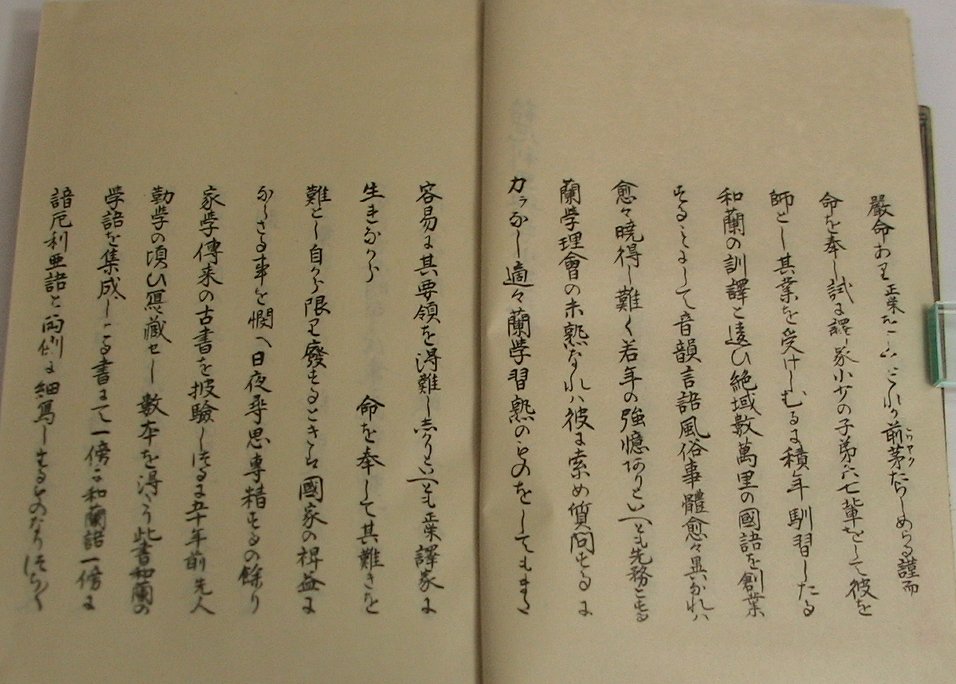 嚴命あり正栄をしてこれか前茅たらしめらる謹而
命を奉し試に譯家小少の子弟六七輩をして彼を
師とし其業を受けしむるに積年馴習したる
和蘭の訓譯と遠ひ絶域數萬里の國語を創業
することにして音韻言語風俗事體愈々異なれハ
愈々曉得し難く若年の強憶ありといへとも先務とする
蘭学理會の未熟なれハ彼に索め質問するに
力なし適々蘭学習熟のものをしてもまた
容易に其要領を得難ししかりといへとも正栄譯家に
生きなから 命を奉して其難きを
難とし自から限り廢するときハ國家の裨益に
ならさる事を憫へ日夜尋思專精するの餘り
家学傳来の古書を披驗しけるに五十年前先人
勤学の頃ひ應藏せし數本を得たり此書和蘭の
学語を集成したる書にて一傍に和蘭語一傍に
諳厄利亜語と両側に細寫したるものなりけり